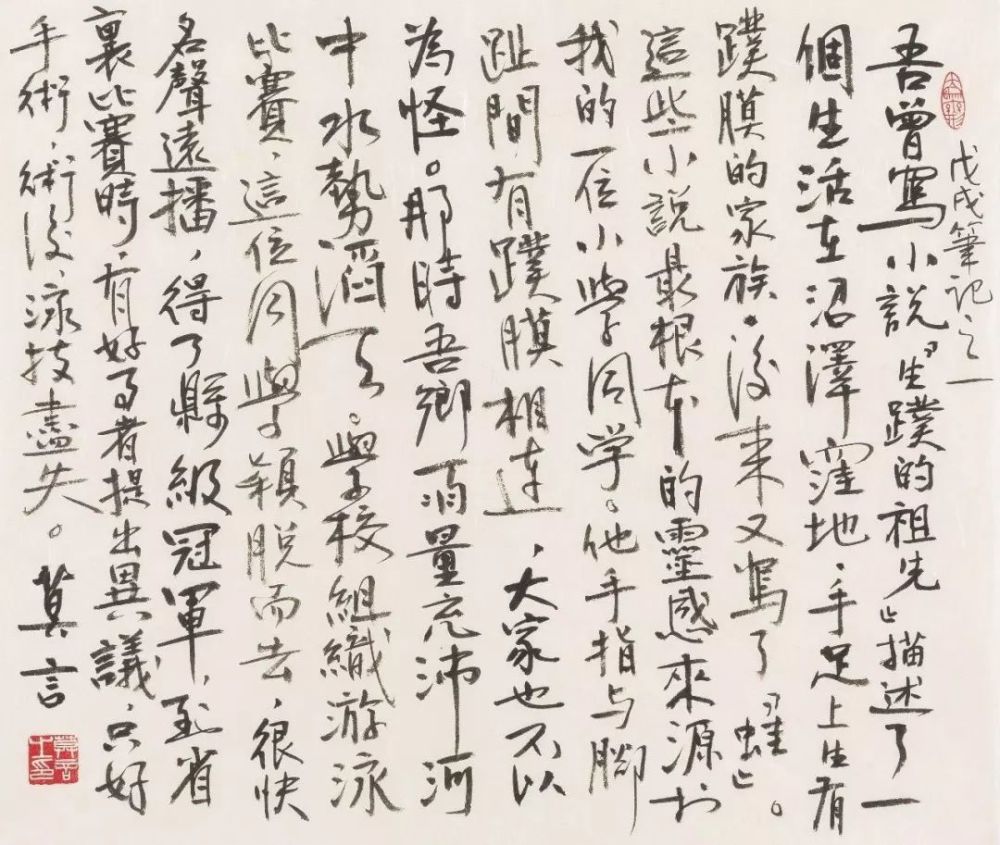 戊戌筆記之一
吾曾寫小說『生蹼的祖先』描述了一
個生活在沼澤窪地、手足上生有
蹼膜的家族。後来又寫了『蛙』。
這些小說最根本的靈感來源於
我的一位小學同学。他手指与腳
趾間有蹼膜相連，大家也不以
為怪。那時吾鄉雨量充沛河
中水勢滔天。學校組織游泳
比賽，這位同學穎脫而去，很快
名聲遠播，得了縣級冠軍，到省
裏比賽時，有好事者提出異議，只好
手術，術後，泳技盡失。莫言